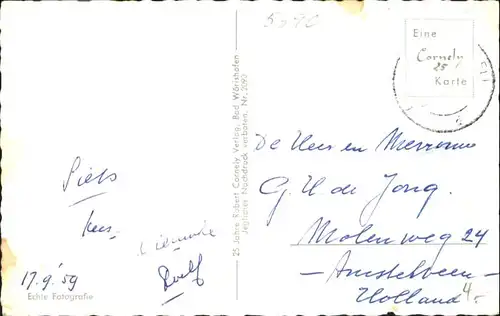 5090
Eine
Cornely
25
Karte
25 Jahre Robert Cornely Verlag, Bad Wörishofen
Jeglicher Nachdruck verboten. Nr. 2090
De Heer en Mevrouw
G. H de Jong.
Molenweg 24
- Amstelveen -
Holland
4.-
17.9.'59
Echte Fotografie